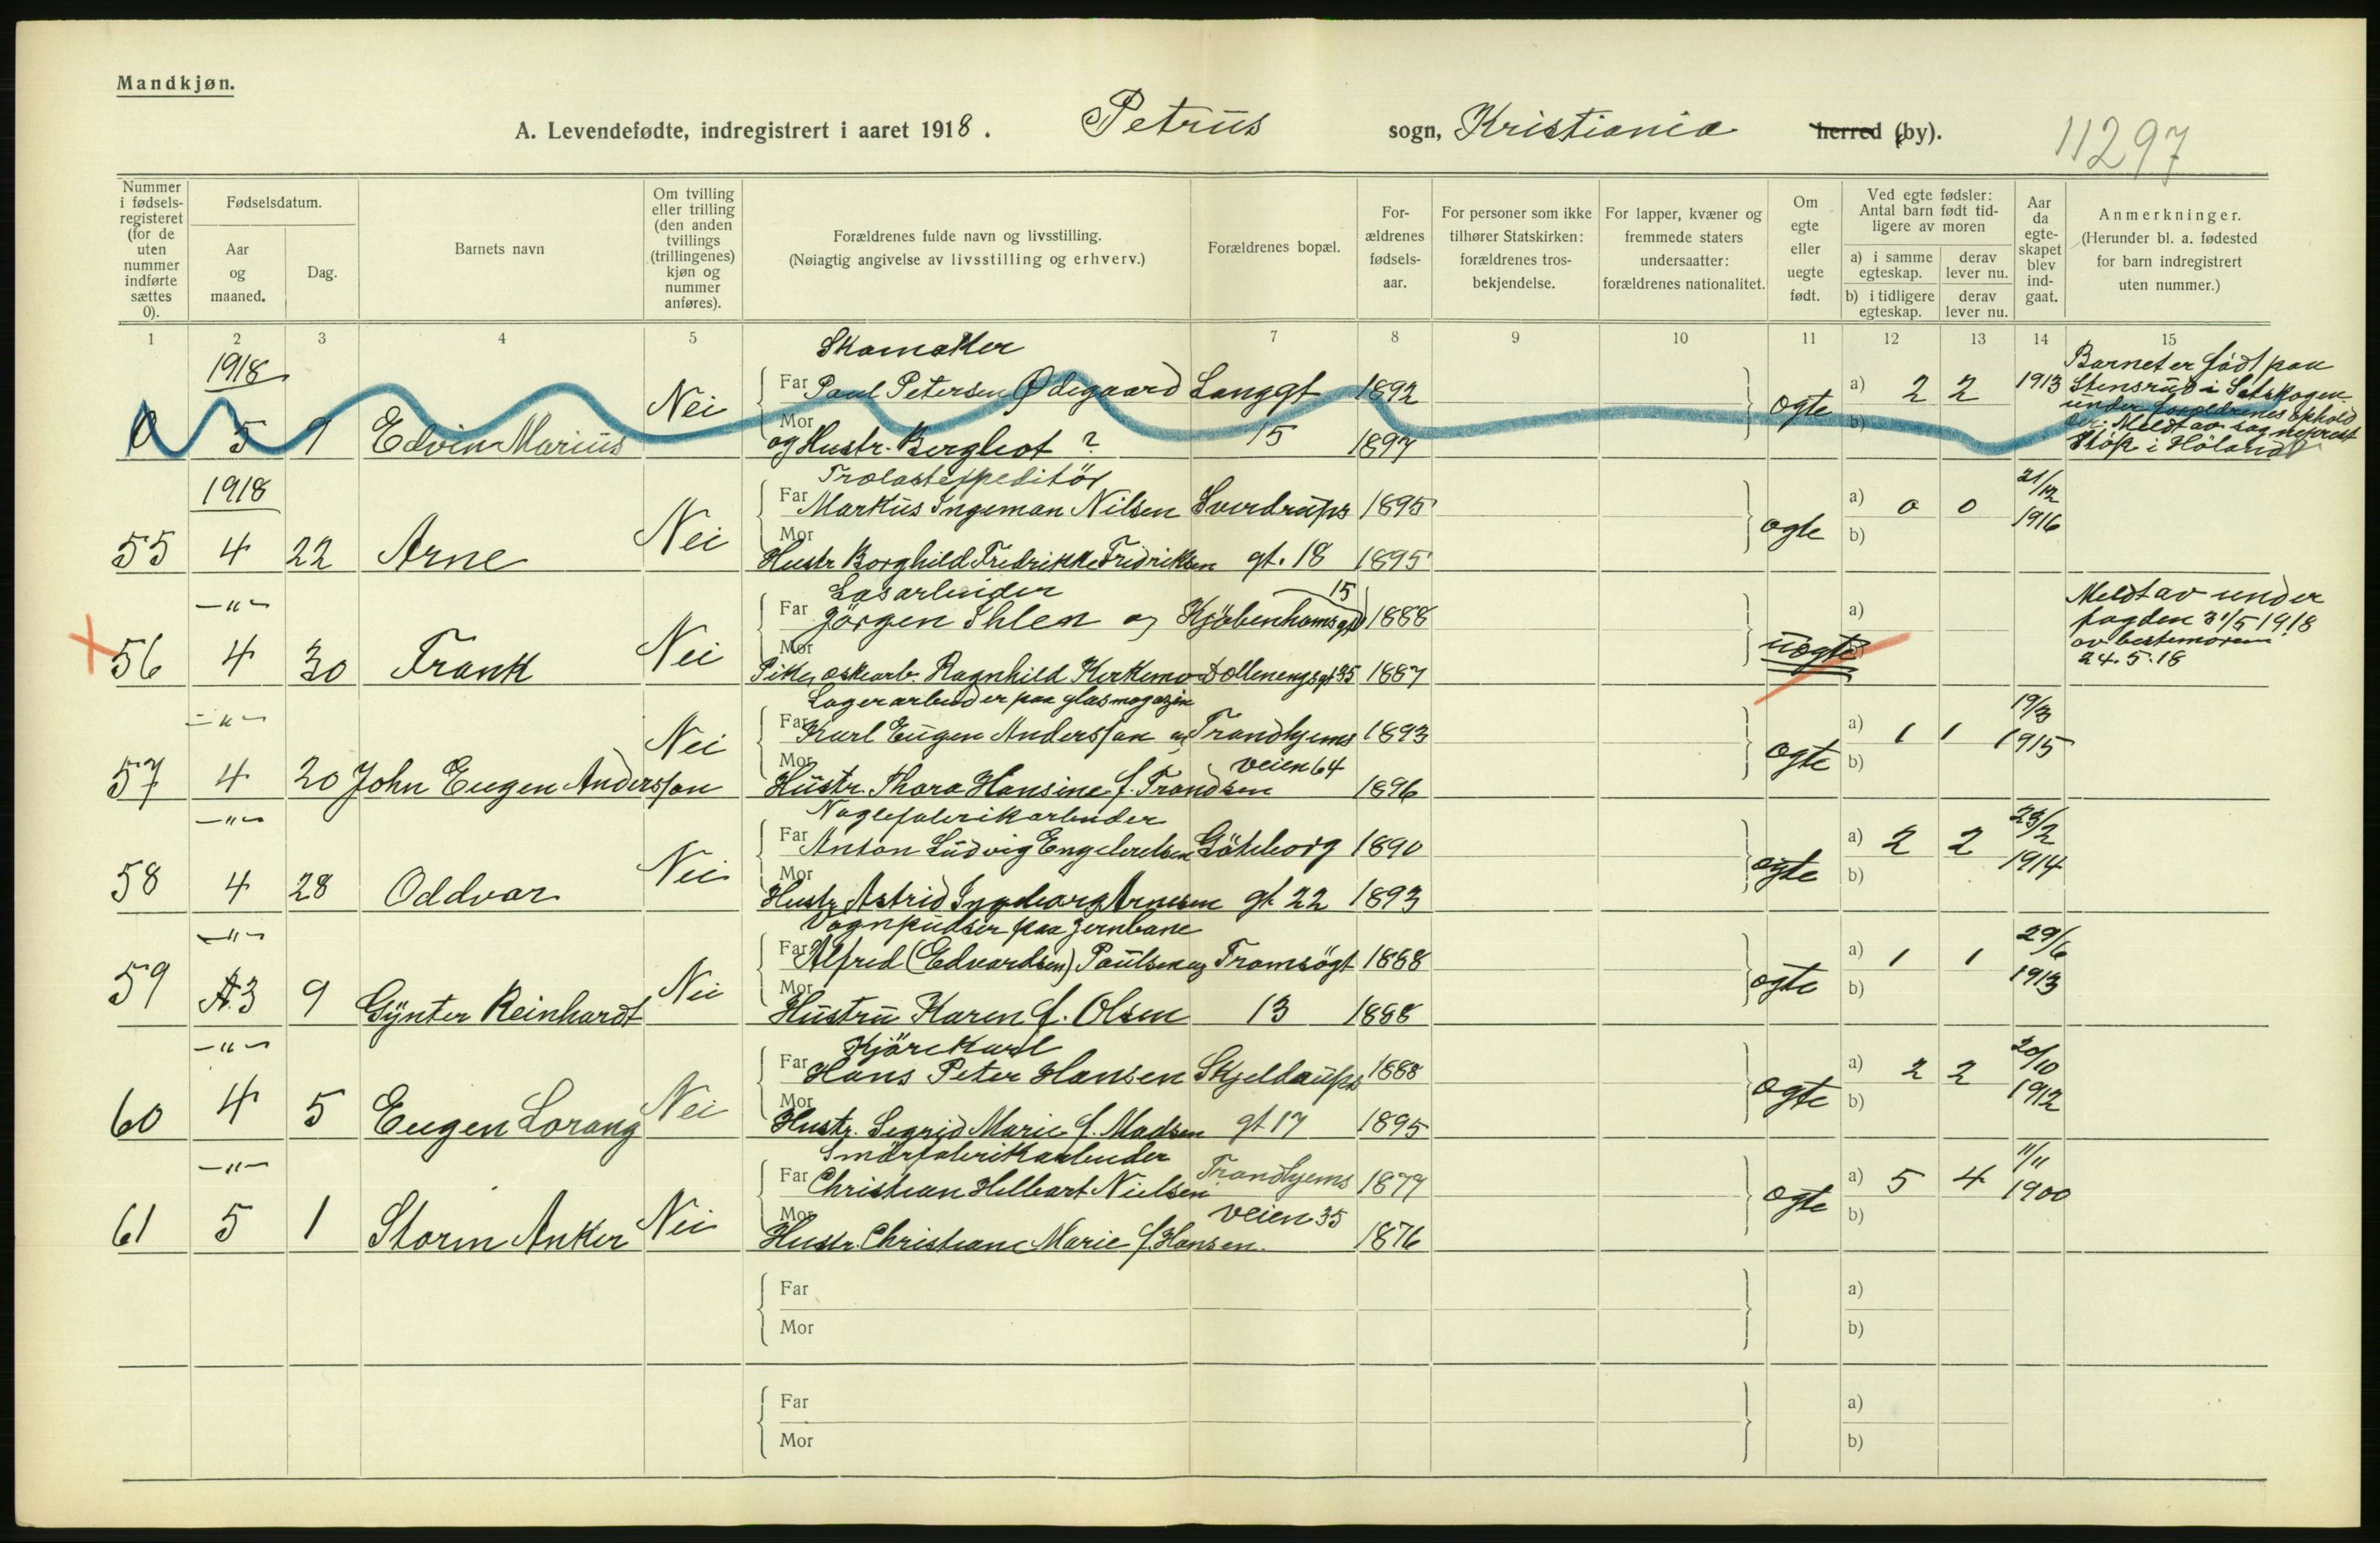 Mandkjøn.
A. Levendefødte, indregistrert i aaret 1918. Petrus sogn, Kristiania herred (by). 11297
Nummer i fødsels-registeret (for de uten nummer indførte sættes 0).
Fødselsdatum.
Aar og maaned.
Dag.
Barnets navn
Om tvilling eller trilling (den anden tvillings (trillingenes) kjøn og nummer anføres).
Forældrenes fulde navn og livsstilling.
(Nøiagtig angivelse av livsstilling og erhverv.)
Forældrenes bopæl.
For-ældrenes fødsels-aar.
For personer som ikke tilhører Statskirken: forældrenes tros-bekjendelse.
For lapper, kvæner og fremmede staters undersaatter: forældrenes nationalitet.
Om egte eller uegte født.
Ved egte fødsler: Antal barn født tid-ligere av moren
a) i samme egteskap.
derav lever nu.
b) i tidligere egteskap.
derav lever nu.
Aar da egte-skapet blev ind-gaat.
Anmerkninger.
(Herunder bl. a. fødested for barn indregistrert uten nummer.)
1 2 3 4 5 7 8 9 10 11 12 13 14 15
1918 Skomaker
Far Paul Petersen Ødegaard Langgt 1892 a) 2 2 1913
0 5 9 Edvin Marius Nei
Mor og Hustr. Bergliot ? 15 1897 egte b)
Barnet er født paa
Stensrud i Setskogen
under forældrenes ophold
der. Meldt av sogneprest
i Höland
1918 Trelastexpeditör
Far Markus Ingeman Nilsen Sverdrups 1895 a) 0 0 21/12 1916
55 4 22 Arne Nei
Mor Hustr Borghild Fredrikke Fridriksen gt. 18 1895 egte b)
—"— Losarbeider 15
Far Jörgen Ihlen og Kjöbenhavnsgt 1888 a)
56 4 30 Frank Nei
Mor Pike, Ragnhild Kirkemo 35 1887 uegte b)
Meldt av under
dagden 31/5 1918
av bestemoren
24.5.18
—"— Lagerarbeider paa glasmagazin
Far Karl Eugen Andersson og Trondhjems 1893 a) 1 1 19/3 1915
57 4 20 John Eugen Andersson Nei
Mor Hustr. Thora Hansine f. Trandsen veien 64 1896 egte b)
—"— Naglefabrikarbeider
Far Anton Ludvig Engebretsen Göteborg 1890 a) 2 2 23/2 1914
58 4 28 Oddvar Nei
Mor Hustr Astrid Ingeborg Arnesen gt 22 1893 egte b)
—"— Vognpudser paa Jernbane
Far Alfred (Edvardsen) Paulsen og Tromsögt 1888 a) 1 1 29/6 1913
59 3 9 Gynter Reinhardt Nei
Mor Hustru Karen f. Olsen 13 1888 egte b)
—"— Kjörekarl
Far Hans Peter Hansen Skjeldrups 1888 a) 2 2 20/10 1912
60 4 5 Eugen Lorang Nei
Mor Hustr. Segrid Marie f. Madsen gt 17 1895 egte b)
—"— Smörfabrikarbeider
Far Christian Hilbart Nielsen Trondhjems 1879 a) 5 4 11/11 1900
61 5 1 Storm Anker Nei
Mor Hustr. Christiane Marie f. Hansen. veien 35 1876 egte b)
Far a)
Mor b)
Far a)
Mor b)